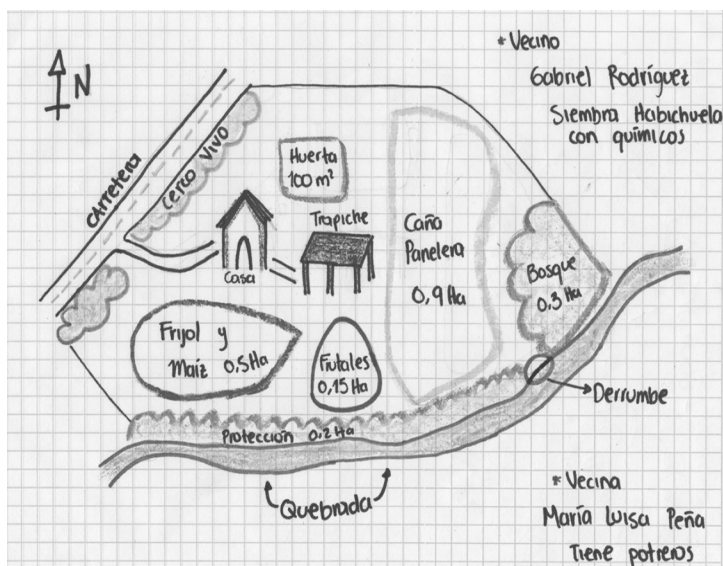 * Vecino
Gabriel Rodríguez
Siembra Habichuela
con químicos
N
Carretera
Cerco Vivo
Huerta
100 m²
Trapiche
Casa
Caña
Panelera
0,9 Ha
Bosque
0,3 Ha
Frijol y
Maíz 0,5 Ha
Frutales
0,15 Ha
Derrumbe
Protección 0,2 Ha
Quebrada
* Vecina
María Luisa Peña
Tiene potreros